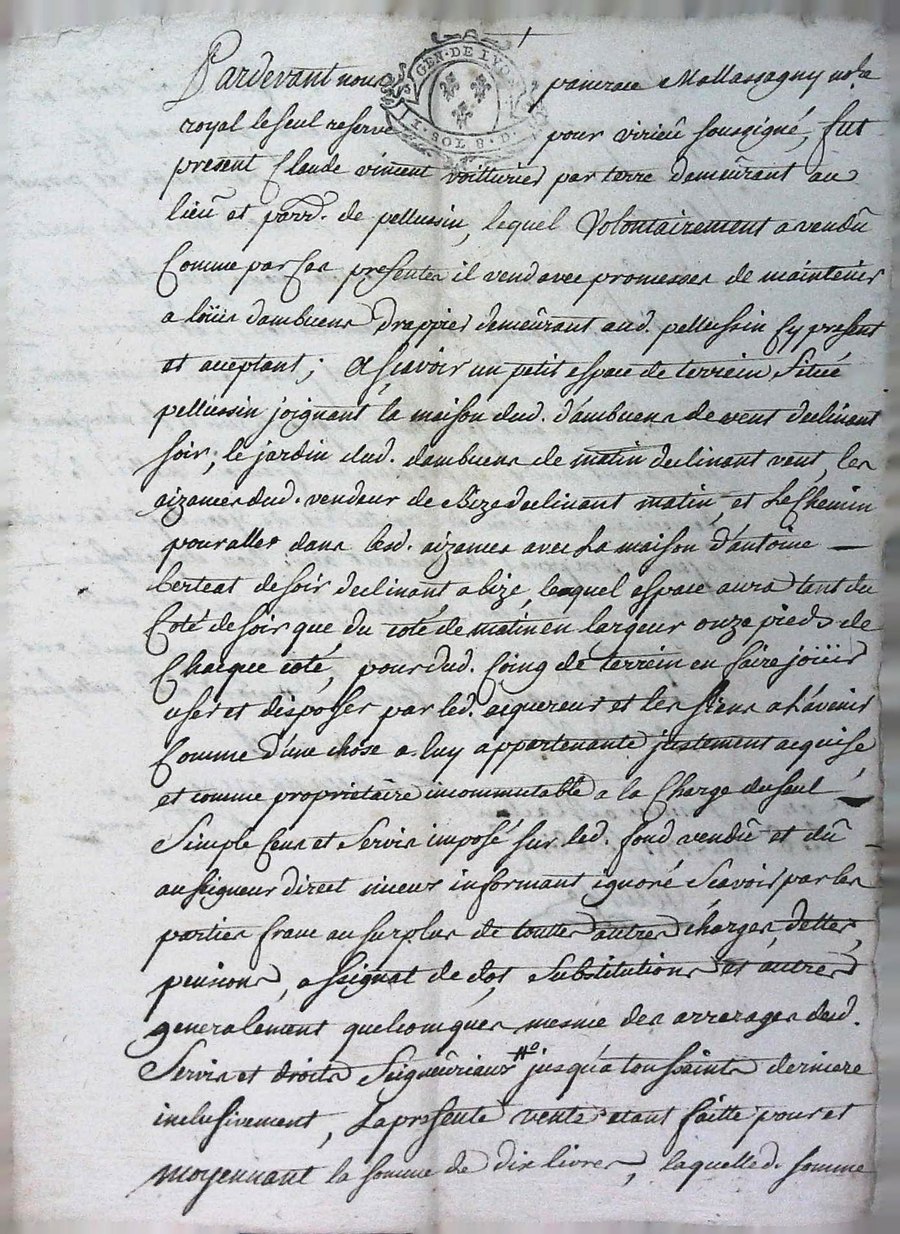 Pardevant nous pancrace Mallassagny no.re
GEN. DE LYON
I. SOL 8. D.
royal le seul reservé pour virieu soussigné, fut
present Claude vincent voiturier par terre demeûrant au
lieû et parr.e de pellussin, lequel Volontairement a vendû
Comme par Ces presentes il vend avec promesses de maintenir
a loüis dambuens drappier demeûrant aud. pellussin Cy present
et aceptant; a Sçavoir un petit espace de terrein Situé
pellussin joignant la maison dud. d'ambuens de vent declinant
soir, le jardin dud. dambuens de matin declinant vent, les
aizances dud. vendeur de Bize declinant matin, et Le Chemin
pour aller dans lesd. aizances avec La maison d'antoine —
berteat de soir declinant a bize, lequel espace aura tant du
Coté de soir que du coté de matin en largeur onze pieds de
Chacque coté, pour dud. Coing de terrein en faire joüir
user et disposer par led. acquereur et les siens a L'avenir
Comme d'une chose a luy appartenante justement acquise
et comme proprietaire incommutable a la Charge du seul
Simple Cens et Servis imposé sur led. fond vendû et dû
au seigneur direct mieux informant ignoré Scavoir par les
parties franc au surplus de touttes autres charges, dettes,
pensions, assignat de dot, substitutions et autres
generalement quelconques mesme des arrerages dud.
Servis et droits Seigneûriaux jusqu'a toussaints derniere
inclusivement, La presente vente etant faitte pour et
moyennant la somme de dix livres, laquelle d. somme